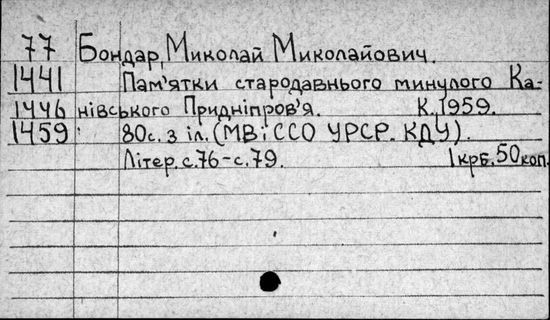 77 Бондар, Миколай Миколайович.
1441 Пам'ятки стародавнього минулого Ка-
1446 нівського Придніпров'я. К. 1959.
1459 80с. з іл. (МВ і ССО УРСР. КДУ).
Літер. с. 76-с. 79. 1 крб. 50 коп.